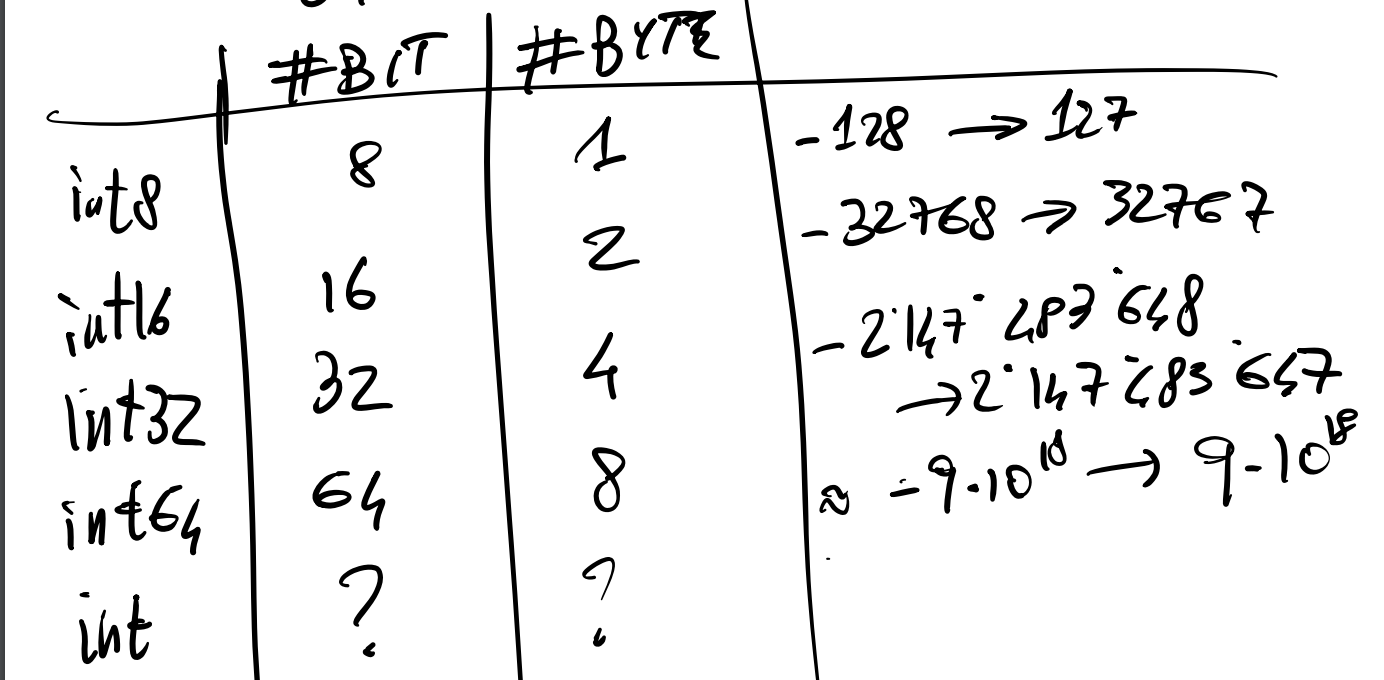 #BIT #BYTE
int8 8 1 -128 → 127
int16 16 2 -32768 → 32767
int32 32 4 -2'147'483'648
→ 2'147'483'647
int64 64 8 ≈ -9·10^18 → 9·10^18
int ? ?